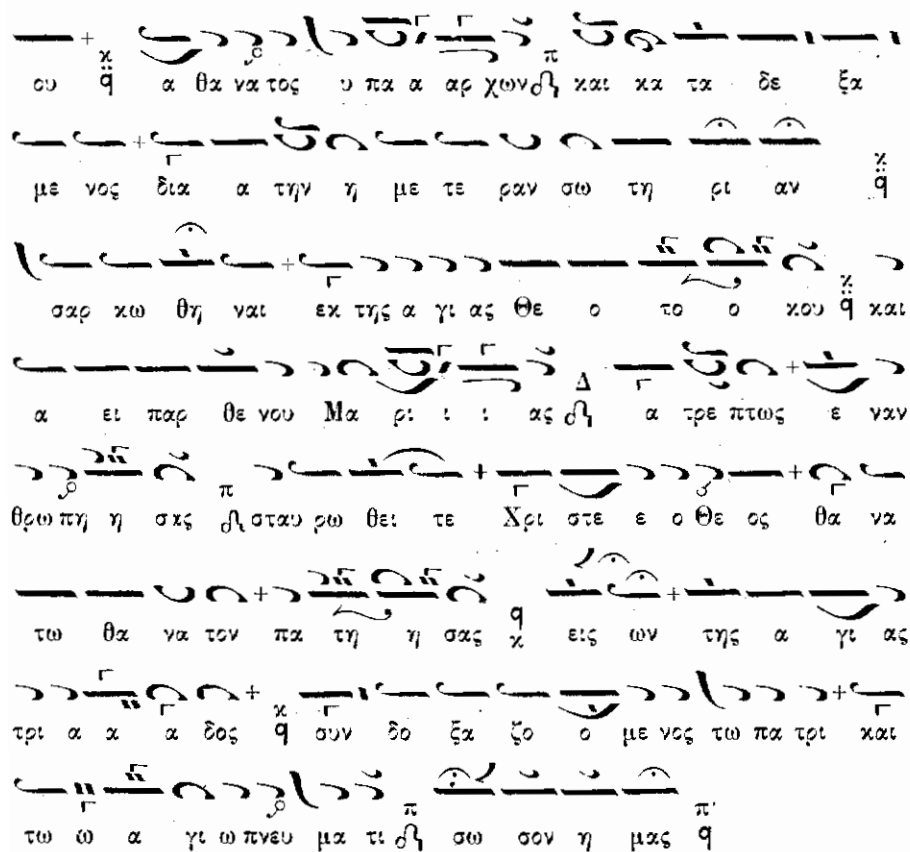 ου α θα να τος υ πα α αρ χων και κα τα δε ξα
με νος δια α την η με τε ραν σω τη ρι αν
σαρ κω θη ναι εκ της α γι ας Θε ο το ο κου και
α ει παρ θε νου Μα ρι ι ι ας α τρε πτως ε ναν
θρω πη η σας σταυ ρω θει τε Χρι στε ε ο Θε ος θα να
τω θα να τον πα τη η σας εις ων της α γι ας
τρι α α α δος συν δο ξα ζο ο με νος τω πα τρι και
τω ω α γι ω πνευ μα τι σω σον η μας